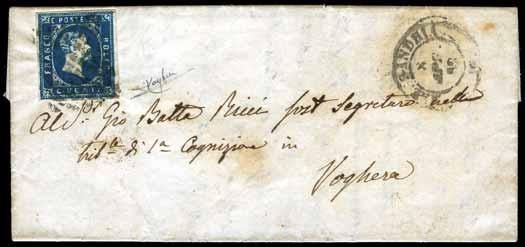 C. POSTE
FRANCO
BOLLO
C. VENTI
Voghera
Al Sig. Gio Batta Ricci sost Segretaro nella
di 1a Cognizione in
Voghera